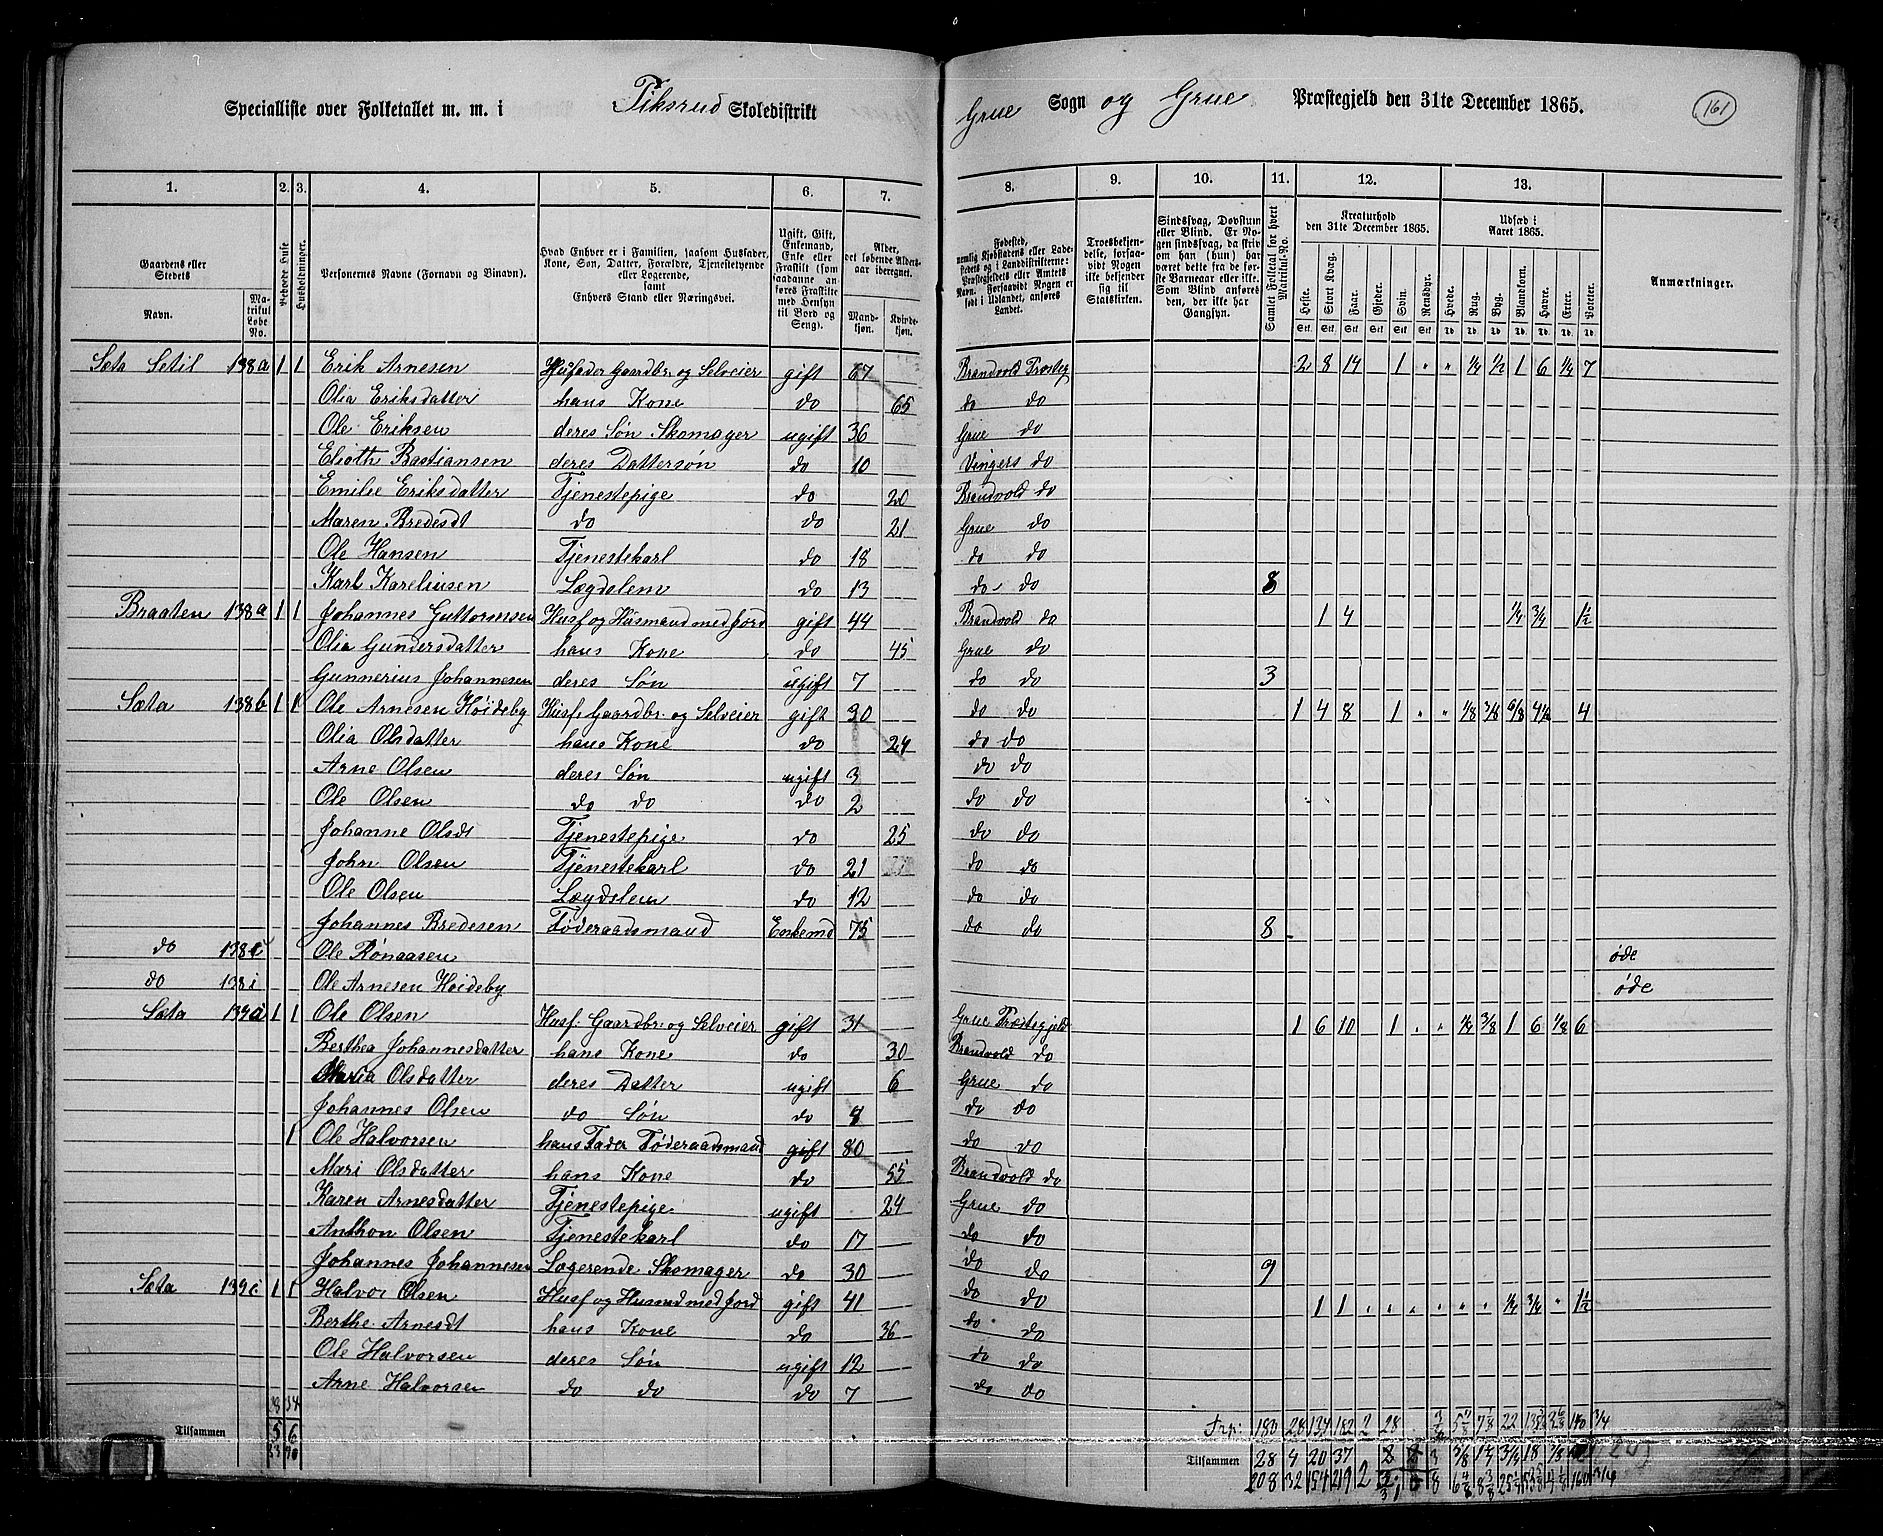 Specialliste over Folketallet m. m. i Tiksrud Skoledistrikt Grue Sogn og Grue Præstegjeld den 31te December 1865. 161
1. 2. 3. 4. 5. 6. 7. 8. 9. 10. 11. 12. 13.
Gaardens eller Stedets Navn. Matrikul Løbe No. Beboede Huse Husholdninger. Personernes Navne (Fornavn og Tilnavn). Hvad Enhver er i Familien, saasom Husfader, Kone, Søn, Datter, Forældre, Tjenestetyende eller Logerende, samt Enhvers Stand eller Næringsvei. Alder, det løbende Alders-aar iberegnet. Mandkjøn. Kvindekjøn. Kreaturhold den 31te December 1865. Udsæd i Aaret 1865. Anmærkninger.
Heste. Stort Kvæg. Faar. Gjeder. Svin. Rensdyr. Hvede. Rug. Byg. Blandkorn. Havre. Erter. Poteter.
Sæta Setil 138a 1 1 Erik Arnesen Husfader Gaardbr. og Selveier gift 67 Brandvold Præsteg 2 8 14 1 " " 1/4 1/2 1 6 1/4 7
Olia Eriksdatter hans Kone do 65 do do
Ole Eriksen deres Søn Skomager ugift 36 Grue do
Elioth Bastiansen deres Dattersøn do 10 Vingers do
Emilie Eriksdatter Tjenestepige do 20 Brandvold do
Maren Bredesdt do do 21 Grue do
Ole Hansen Tjenestekarl do 18 do do
Karl Kareliusen Lægdslem do 13 do do 8
Braaten 138a 1 1 Johannes Guttormsen Husf og Husmand med Jord gift 44 Brandvold do 1 4 1/4 3/4 1 1/2
Olia Gundersdatter hans Kone do 45 Grue do
Gunnerius Johannesen deres Søn ugift 7 do do 3
Sæta 138b 1 1 Ole Arnesen Høideby Husf. Gaardbr. og Selveier gift 30 do do 1 4 8 1 " " 1/8 3/8 6/8 4 1/2 4
Olia Olsdatter hans Kone do 24 do do
Arne Olsen deres Søn ugift 3 do do
Ole Olsen do do do 2 do do
Johanne Olsdt Tjenestepige do 25 do do
John Olsen Tjenestekarl do 21 do do
Ole Olsen Lægdslem do 12 do do
Johannes Bredesen Føderaadsmand Enkemd 75 do do 8
do Ole Rønaasen øde
do 138i Ole Arnesen Høideby øde
Sæta 139a 1 1 Ole Olsen Husf. Gaardbr. og Selveier gift 31 Grue Præstegjeld 1 6 10 1 " " 1/8 3/8 1 6 1/8 6
Berthea Johannesdatter hans Kone do 30 Brandvold do
Maria Olsdatter deres Datter ugift 6 Grue do
Johannes Olsen do Søn do do do
1 Ole Halvorsen hans Fader Føderaadsmand gift 80 do do
Mari Olsdatter hans Kone do 55 Brandvold do
Karen Arnesdatter Tjenestepige ugift 24 Grue do
Anthon Olsen Tjenestekarl do 17 do do
Johannes Johannesen Logerende Skomager do 30 do do 9
Sæta 139c 1 1 Halvor Olsen Husf og Husmd med Jord gift 41 do do 1 1 " " " " " 1/4 3/4 " 1 1/2
Berthe Arnesdt hans Kone do 36 do do
Ole Halvorsen deres Søn ugift 12 do do
Arne Halvorsen do do do 7 do do
Tilsammen 5 6
180 28 134 182 2 28
Tilsammen 28 4 20 37
208 32 154 219 2